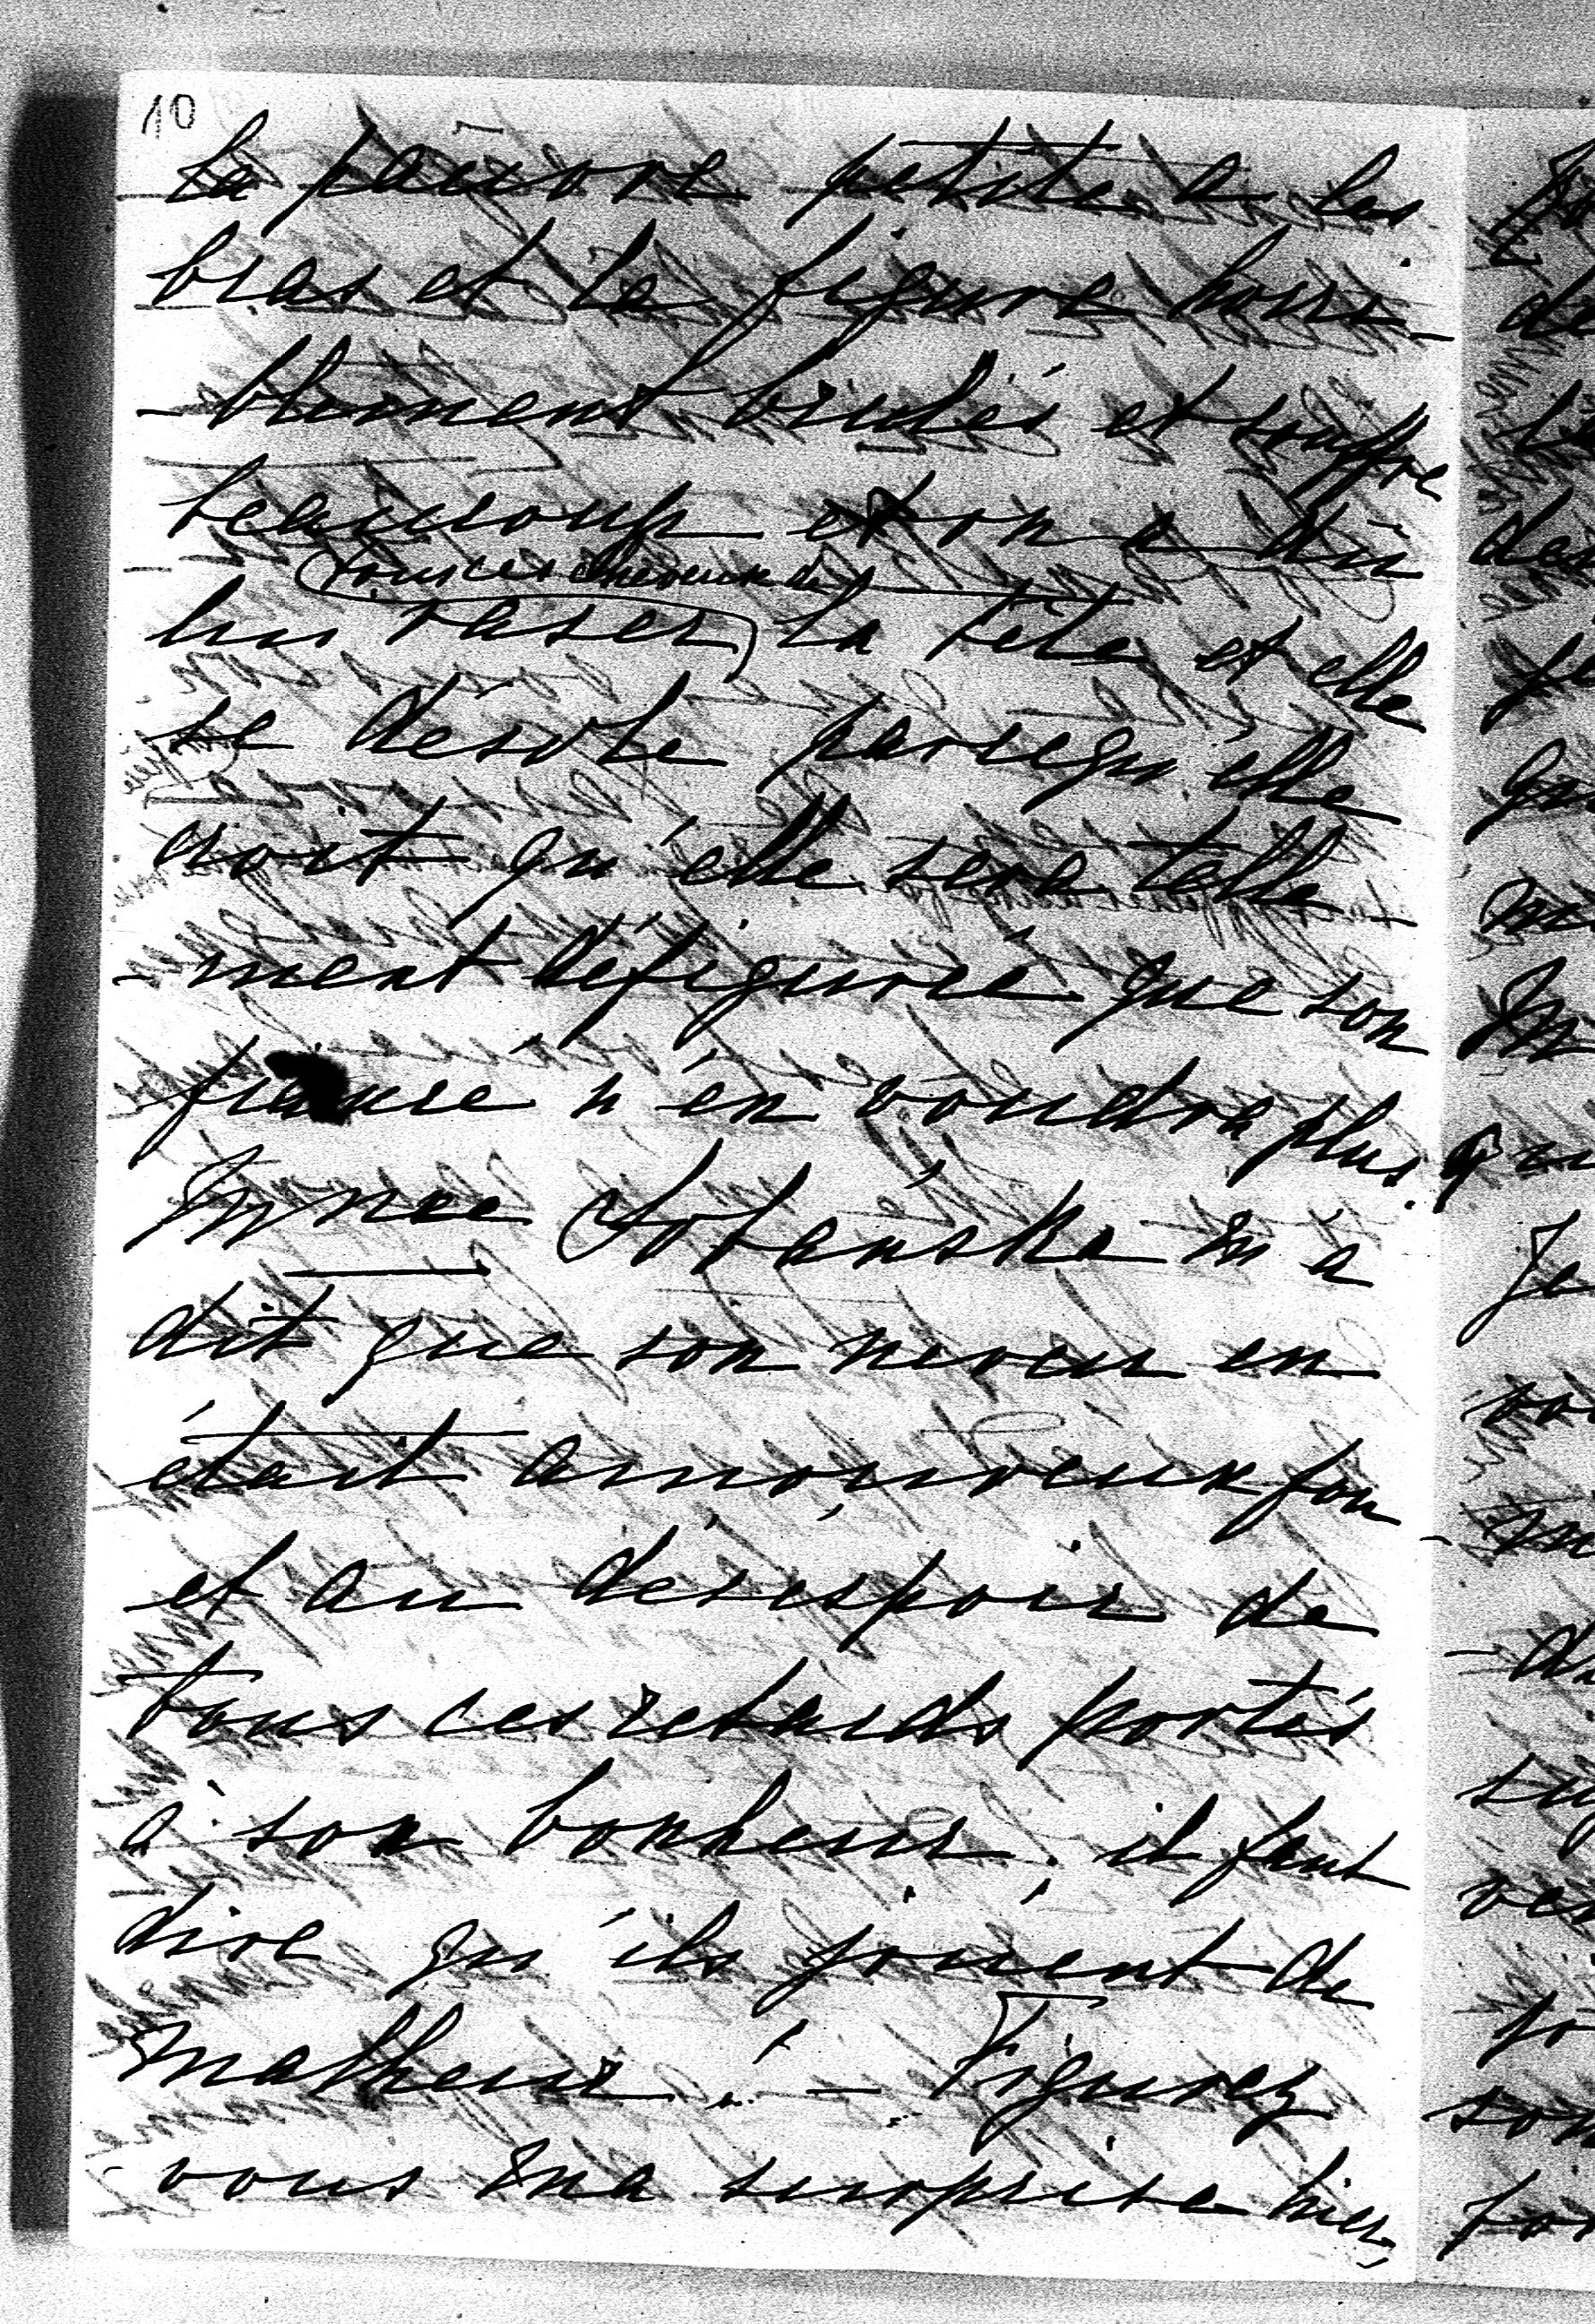 10
La pauvre petite a les
bras et la figure horri-
-blement brulés et souffre
beaucoup et on a dû
tous ces cheveux de
lui raser la tête et elle
se désole parcequ'elle
croit qu'elle sera telle-
-ment défigurée que son
fiancé n'en voudra plus.
Mme m'a
dit que son neveu en
était amoureux fou
et au désespoir de
tous ces retards portés
à son bonheur. il faut
dire qu'ils jouent de
malheur! — Figurez
vous ma surprise hier,